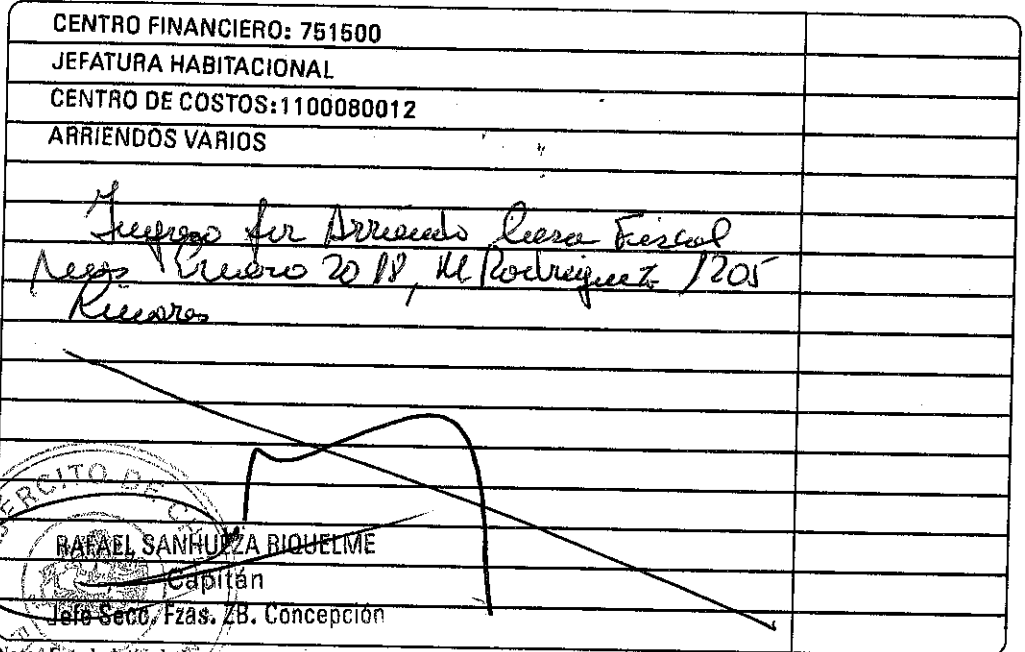 CENTRO FINANCIERO: 751500
JEFATURA HABITACIONAL
CENTRO DE COSTOS:1100080012
ARRIENDOS VARIOS
Ingreso por Arriendo Casa Fiscal
Mes Enero 2018, M Rodriguez 1205
Linares
EJERCITO DE
RAFAEL SANHUEZA RIQUELME
Capitán
Jefe Secc. Fzas. ZB. Concepción